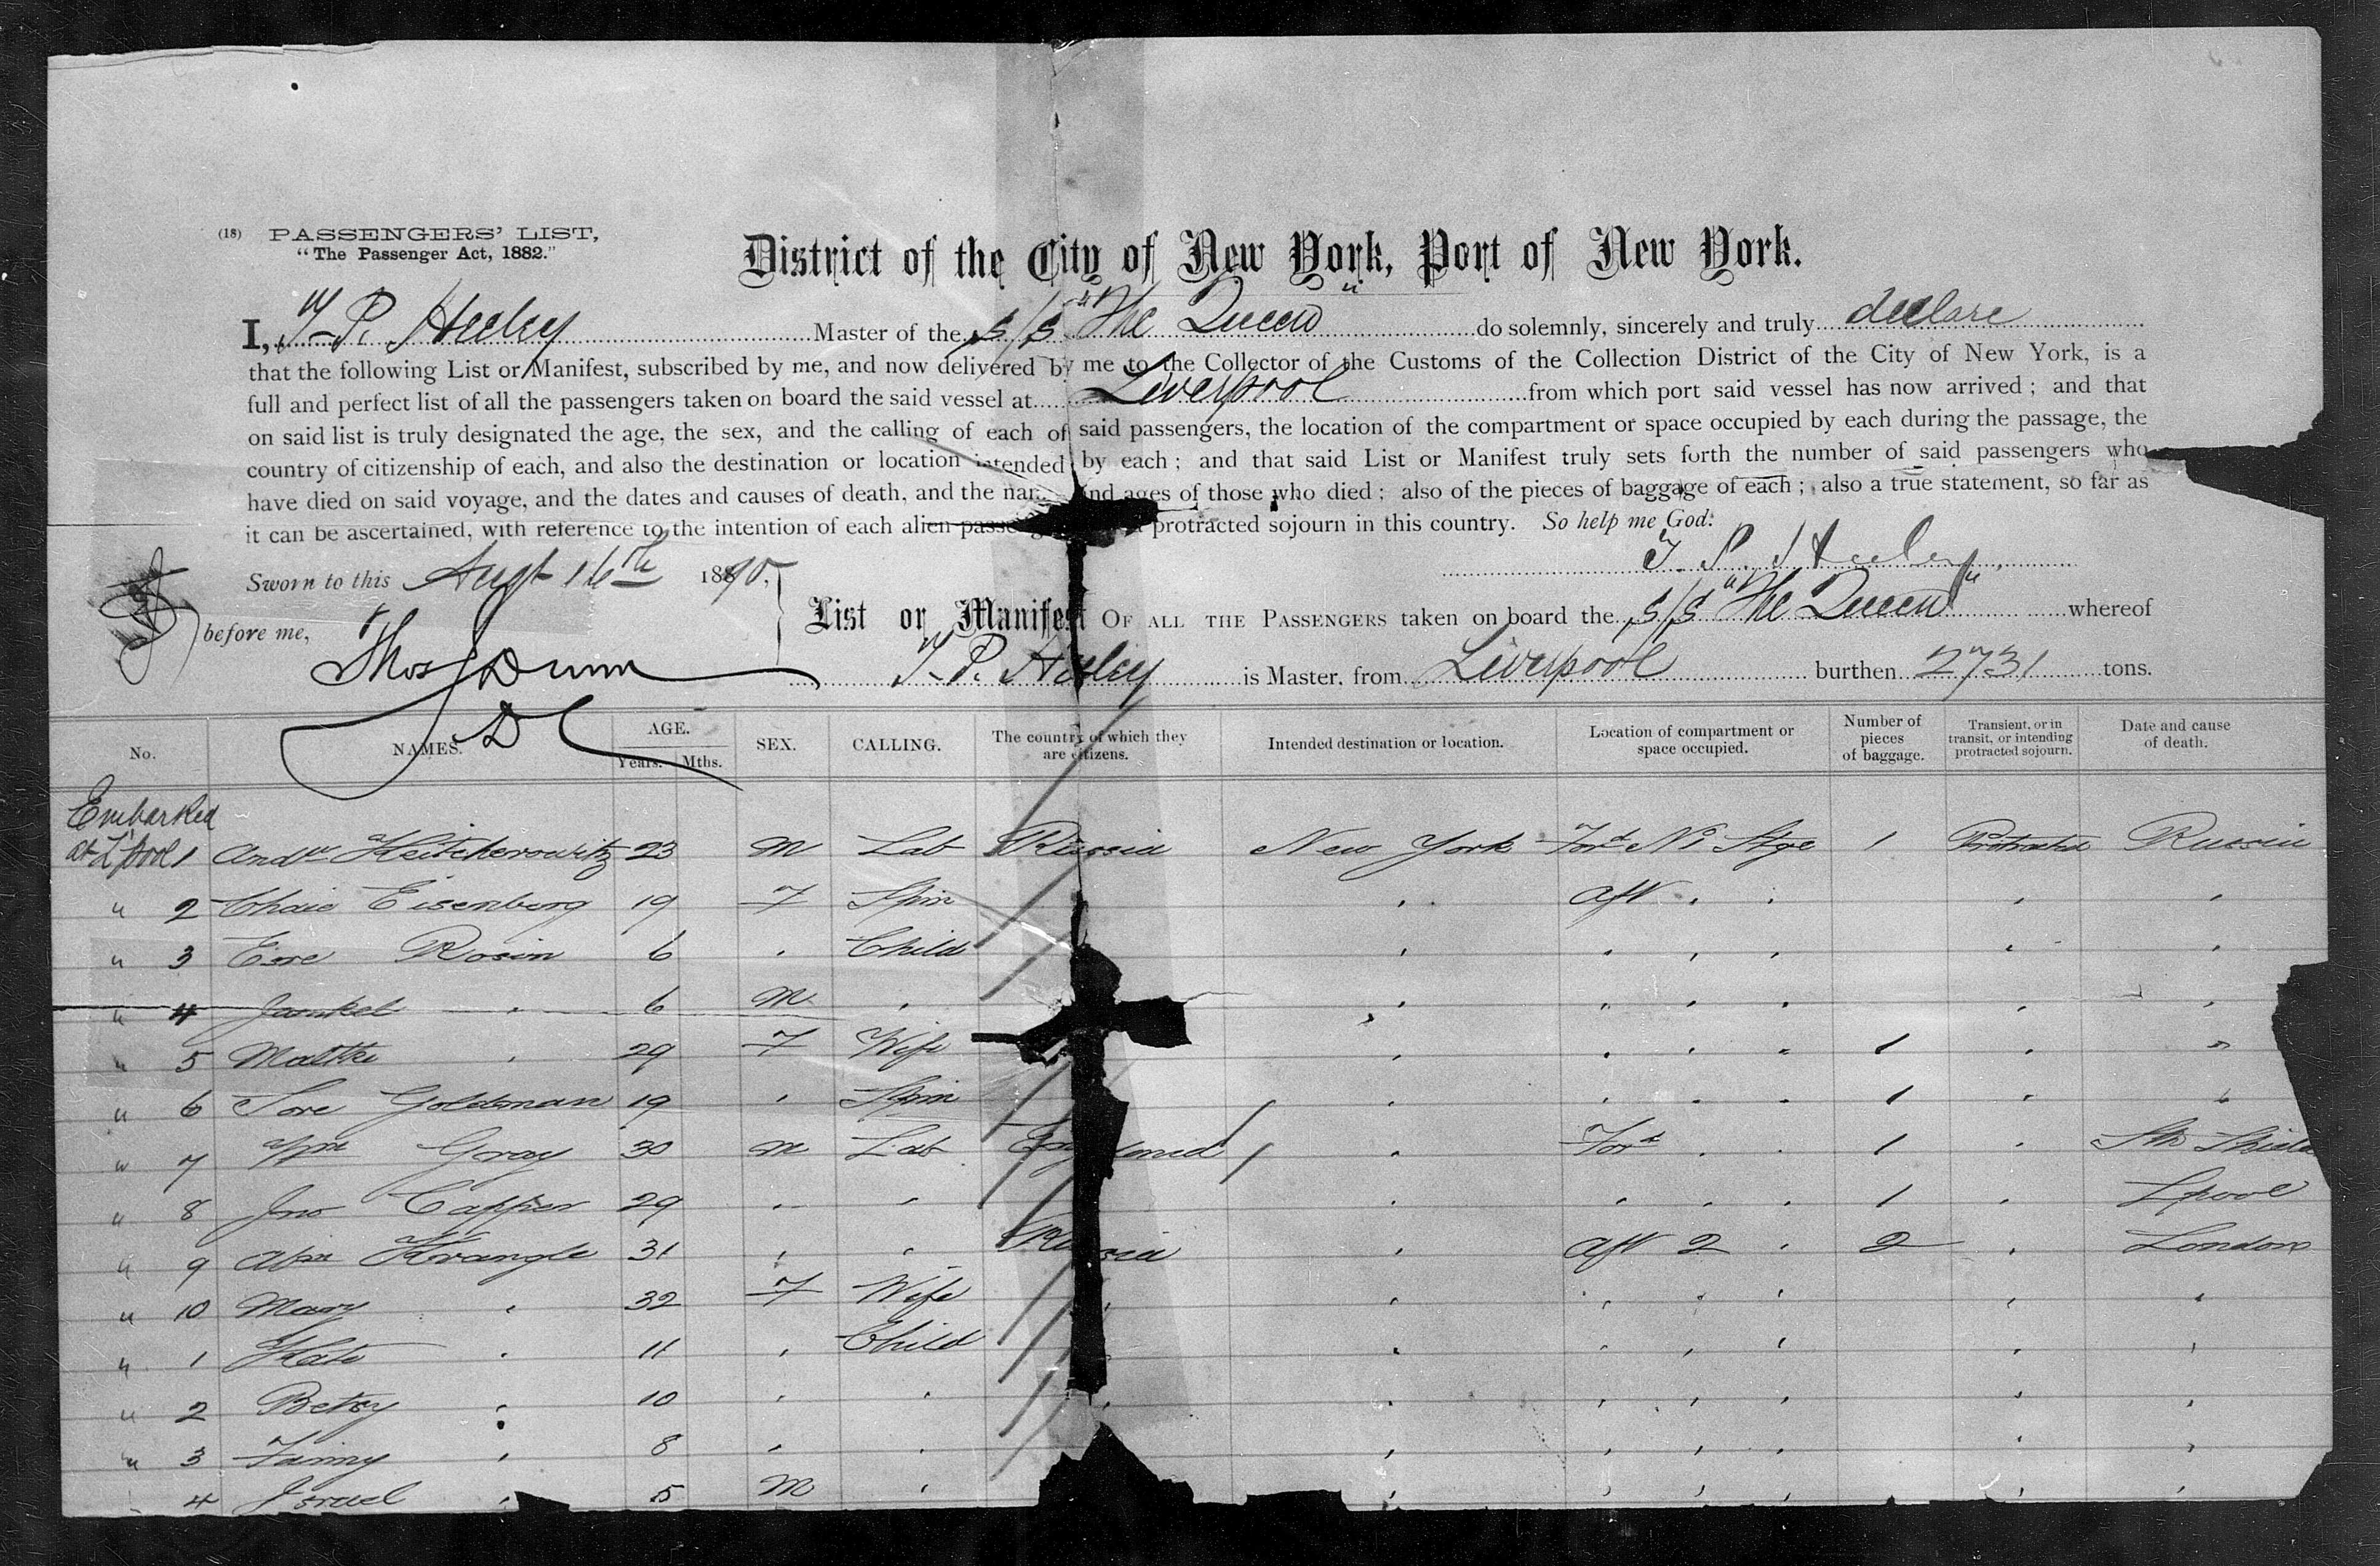 (18) PASSENGERS' LIST,
"The Passenger Act, 1882."
District of the City of New York, Port of New York.
I, T. P. Heeley Master of the s/s "The Queen" do solemnly, sincerely and truly declare
that the following List or Manifest, subscribed by me, and now delivered by me to the Collector of the Customs of the Collection District of the City of New York, is a
full and perfect list of all the passengers taken on board the said vessel at Liverpool from which port said vessel has now arrived; and that
on said list is truly designated the age, the sex, and the calling of each of said passengers, the location of the compartment or space occupied by each during the passage, the
country of citizenship of each, and also the destination or location intended by each; and that said List or Manifest truly sets forth the number of said passengers who
have died on said voyage, and the dates and causes of death, and the nam and ages of those who died; also of the pieces of baggage of each; also a true statement, so far as
it can be ascertained, with reference to the intention of each alien passeng protracted sojourn in this country. So help me God.
T. P. Heeley
Sworn to this Augt 16th 1890,
before me, Thos J Dunn
DC
List or Manifest OF ALL THE PASSENGERS taken on board the s/s "The Queen" whereof
T. P. Heeley is Master, from Liverpool burthen 2731 tons.
No. NAMES. AGE. Years. Mths. SEX. CALLING. The country of which they are citizens. Intended destination or location. Location of compartment or space occupied. Number of pieces of baggage. Transient, or in transit, or intending protracted sojourn. Date and cause of death.
Embarked
at L'pool 1 Andw 23 M Lab Russia New York Ford No 1 Stge 1 Protracted Russia
" 2 Chaie Eisenberg 19 F Spin " Aft " " " "
" 3 Esre Rosin 6 " Child " " " " " "
" 4 Jankel " 6 M " " " " " " "
" 5 Malthe " 29 F Wife " " " " 1 " "
" 6 Sore Goldsman 19 " Spin " " " " 1 " "
" 7 Wm Gray 30 M Lab England " Ford " " 1 " Sth Shields
" 8 Jno Capper 29 " " " " " " 1 " Lpool
" 9 Abm Krangle 31 " " Russia " Aft 2 " 2 " London
" 10 Mary " 32 F Wife " " " " " " "
" 1 Kate " 11 " Child " " " " " "
" 2 Betsy " 10 " " " " " " " " "
" 3 Fanny " 8 " " " " " " " "
4 Israel " 5 M " " " " " " "